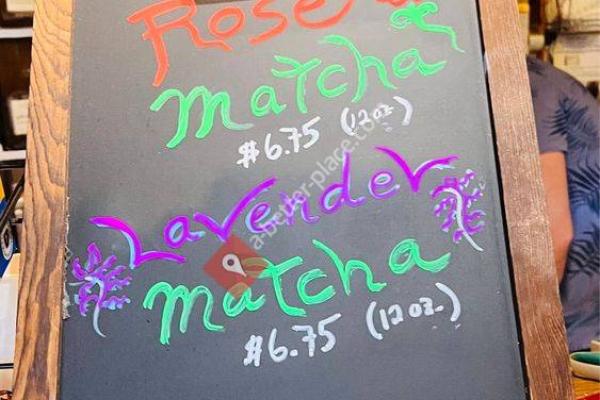 Rose
matcha
$6.75 (12oz.)
Lavender
matcha
$6.75 (12oz.)
a-better-place.com